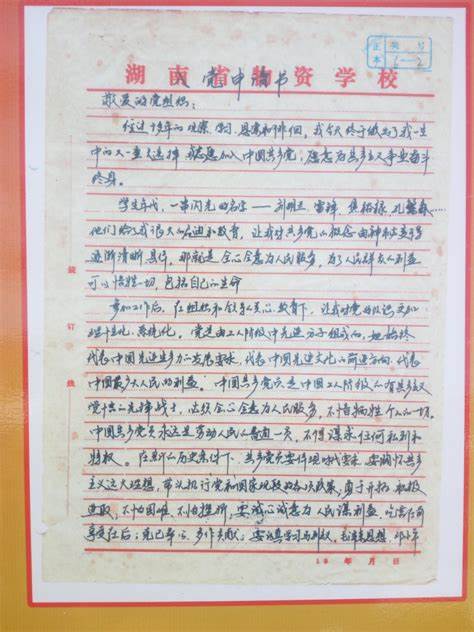 湖南省物资学校
入党申请书
敬爱的党组织：
经过十多年的观察、学习、思索和徘徊，我今天终于做出了我一生
中的又一重大选择 志愿加入中国共产党；愿意为共产主义事业奋斗
终身。
学生年代，一串闪光的名字——刘胡兰、雷锋、焦裕禄、孔繁森
他们给了我很大的启迪和教育，让我对共产党的概念由神秘
逐渐清晰、具体，那就是全心全意为人民服务，为了人民群众的利益
可以牺牲一切，包括自己的生命
参加工作后，在组织和领导的关心、教育下，让我对党的认识更加
理性化、系统化。党是由工人阶级中先进分子组成的，她始终
代表中国先进生产力的发展要求，代表中国先进文化的前进方向，代表
中国最广大人民的利益。中国共产党员是中国工人阶级的有共产主义
觉悟的先锋战士，必须全心全意为人民服务，不惜牺牲个人的一切。
中国共产党员永远是劳动人民的普通一员，不得谋求任何私利和
特权。在新的历史条件下，共产党员要体现时代要求，要胸怀共产
主义远大理想，带头执行党和国家现阶段的各项政策，勇于开拓、积极
进取，不怕困难、不怕挫折；要诚心诚意为人民谋利益，吃苦在前
享受在后；克己奉公，多作贡献；要认真学习马列、毛泽东思想、邓小平
装
订
线
19 年 月 日